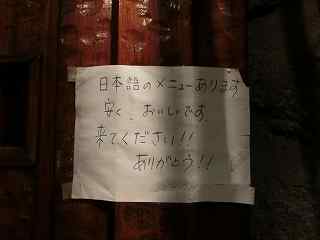 日本語のメニューあります
安く、おいしいです
来てください!!
ありがとう!!